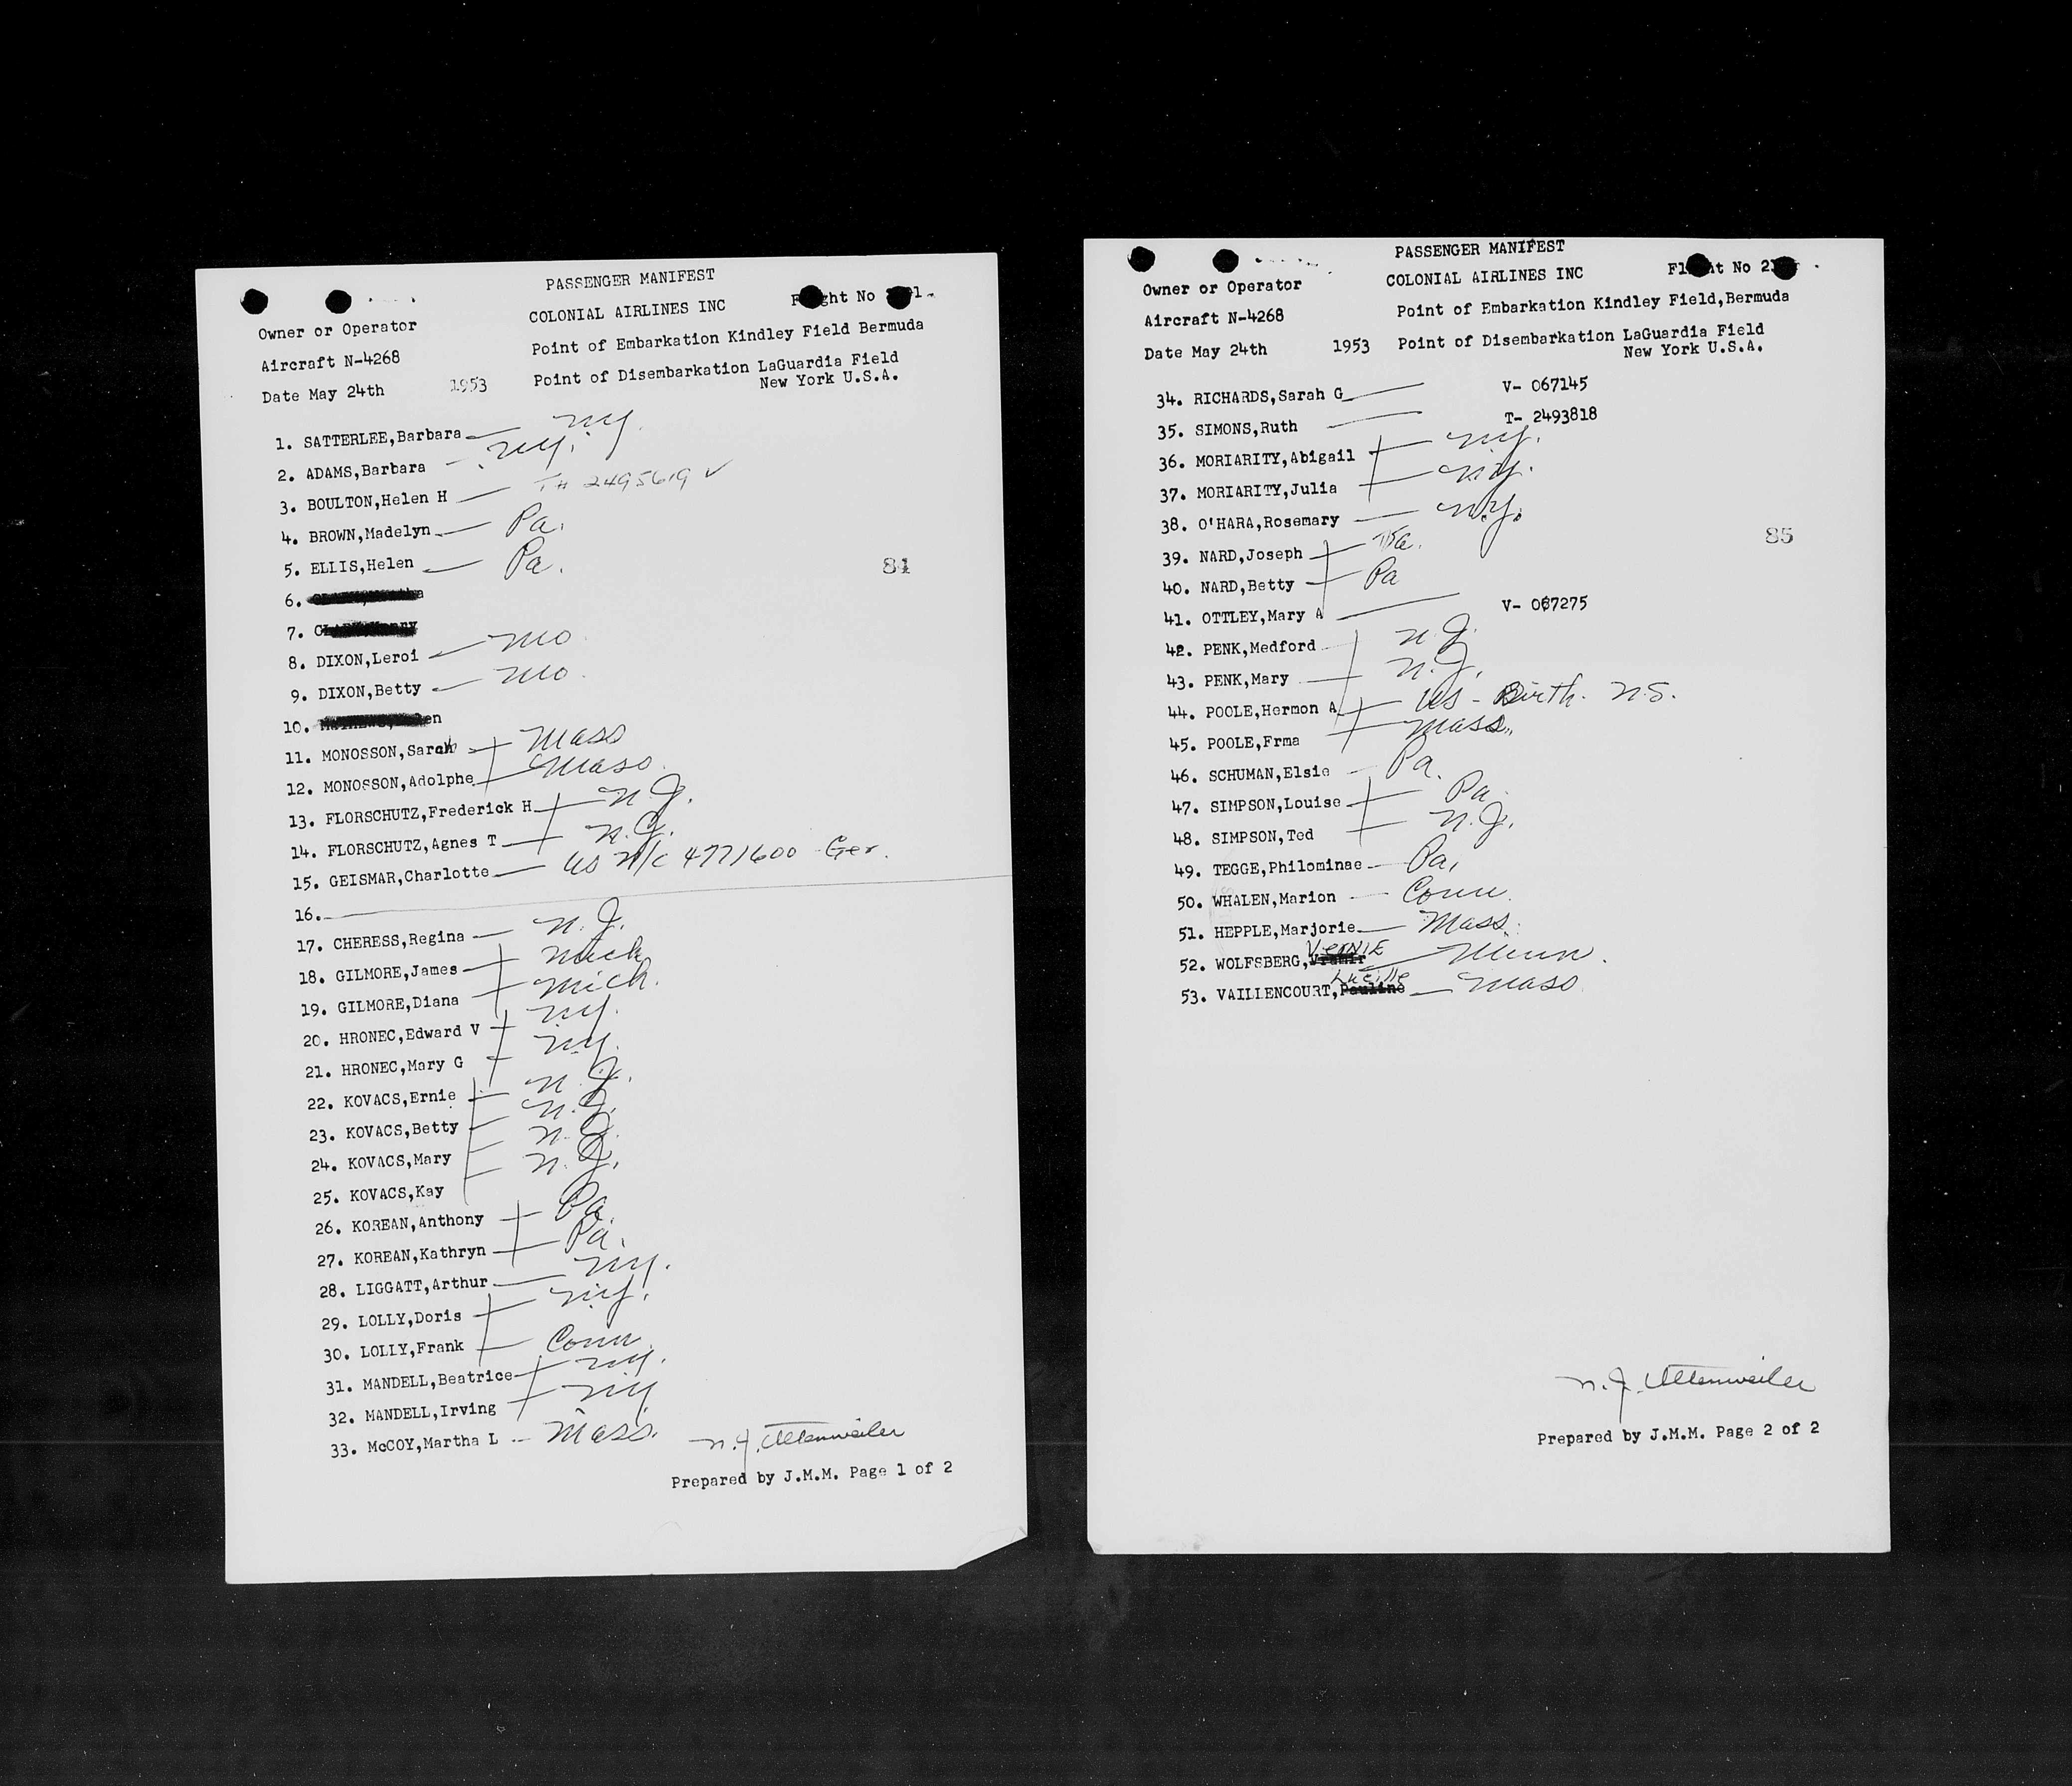 PASSENGER MANIFEST
COLONIAL AIRLINES INC
Owner or Operator
Point of Embarkation Kindley Field Bermuda
Aircraft N-4268
Point of Disembarkation LaGuardia Field
New York U.S.A.
Date May 24th 1953
1. SATTERLEE,Barbara ny.
2. ADAMS,Barbara ny.
3. BOULTON,Helen H T# 2495619 ✓
4. BROWN,Madelyn Pa.
5. ELLIS,Helen Pa.
84
6.
7.
8. DIXON,Leroi Mo
9. DIXON,Betty Mo.
10.
11. MONOSSON,Sarah Mass
12. MONOSSON,Adolphe Mass.
13. FLORSCHUTZ,Frederick H N.J.
14. FLORSCHUTZ,Agnes T N.J.
15. GEISMAR,Charlotte US N/C 4771600 Ger.
16.
17. CHERESS,Regina N.J.
18. GILMORE,James Mich
19. GILMORE,Diana Mich.
20. HRONEC,Edward V ny.
21. HRONEC,Mary G ny.
22. KOVACS,Ernie N.J.
23. KOVACS,Betty N.J.
24. KOVACS,Mary N.J.
25. KOVACS,Kay N.J.
26. KOREAN,Anthony Pa.
27. KOREAN,Kathryn Pa.
28. LIGGATT,Arthur ny.
29. LOLLY,Doris ny.
30. LOLLY,Frank Conn.
31. MANDELL,Beatrice ny.
32. MANDELL,Irving ny
33. McCOY,Martha L Mass.
N.J. Uttenweiler
Prepared by J.M.M. Page 1 of 2
PASSENGER MANIFEST
COLONIAL AIRLINES INC
Owner or Operator
Point of Embarkation Kindley Field,Bermuda
Aircraft N-4268
Point of Disembarkation LaGuardia Field
New York U.S.A.
Date May 24th 1953
34. RICHARDS,Sarah G V- 067145
35. SIMONS,Ruth T- 2493818
36. MORIARITY,Abigail ny.
37. MORIARITY,Julia ny.
38. O'HARA,Rosemary n.y.
85
39. NARD,Joseph Pa.
40. NARD,Betty Pa
41. OTTLEY,Mary A V- 067275
42. PENK,Medford N.J.
43. PENK,Mary N.J.
44. POOLE,Hermon A US - Birth. N.S.
45. POOLE,Frma Mass.
46. SCHUMAN,Elsie Pa.
47. SIMPSON,Louise Pa
48. SIMPSON,Ted N.J.
49. TEGGE,Philominae Pa.
50. WHALEN,Marion Conn.
51. HEPPLE,Marjorie Mass.
52. WOLFSBERG, VERNIE Minn.
53. VAILLENCOURT,Pauline Lucille Mass.
N.J. Uttenweiler
Prepared by J.M.M. Page 2 of 2